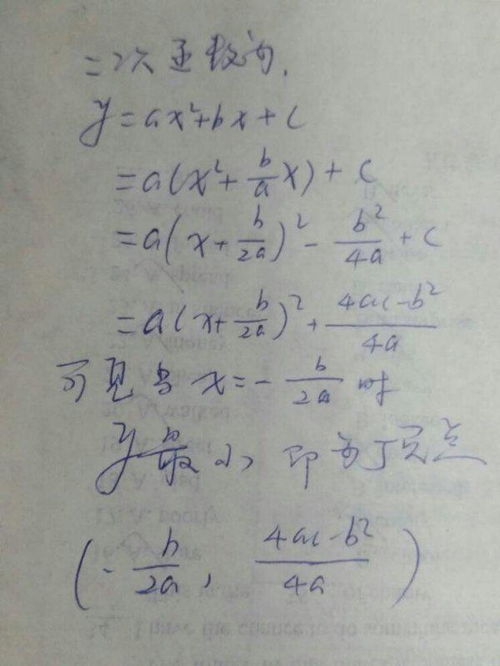 二次函数为,
y=ax²+bx+c
=a(x²+b/a x)+c
=a(x+b/2a)²-b²/4a+c
=a(x+b/2a)²+4ac-b²/4a
可见当x=-b/2a时
y最小,即为顶点
(-b/2a, 4ac-b²/4a)